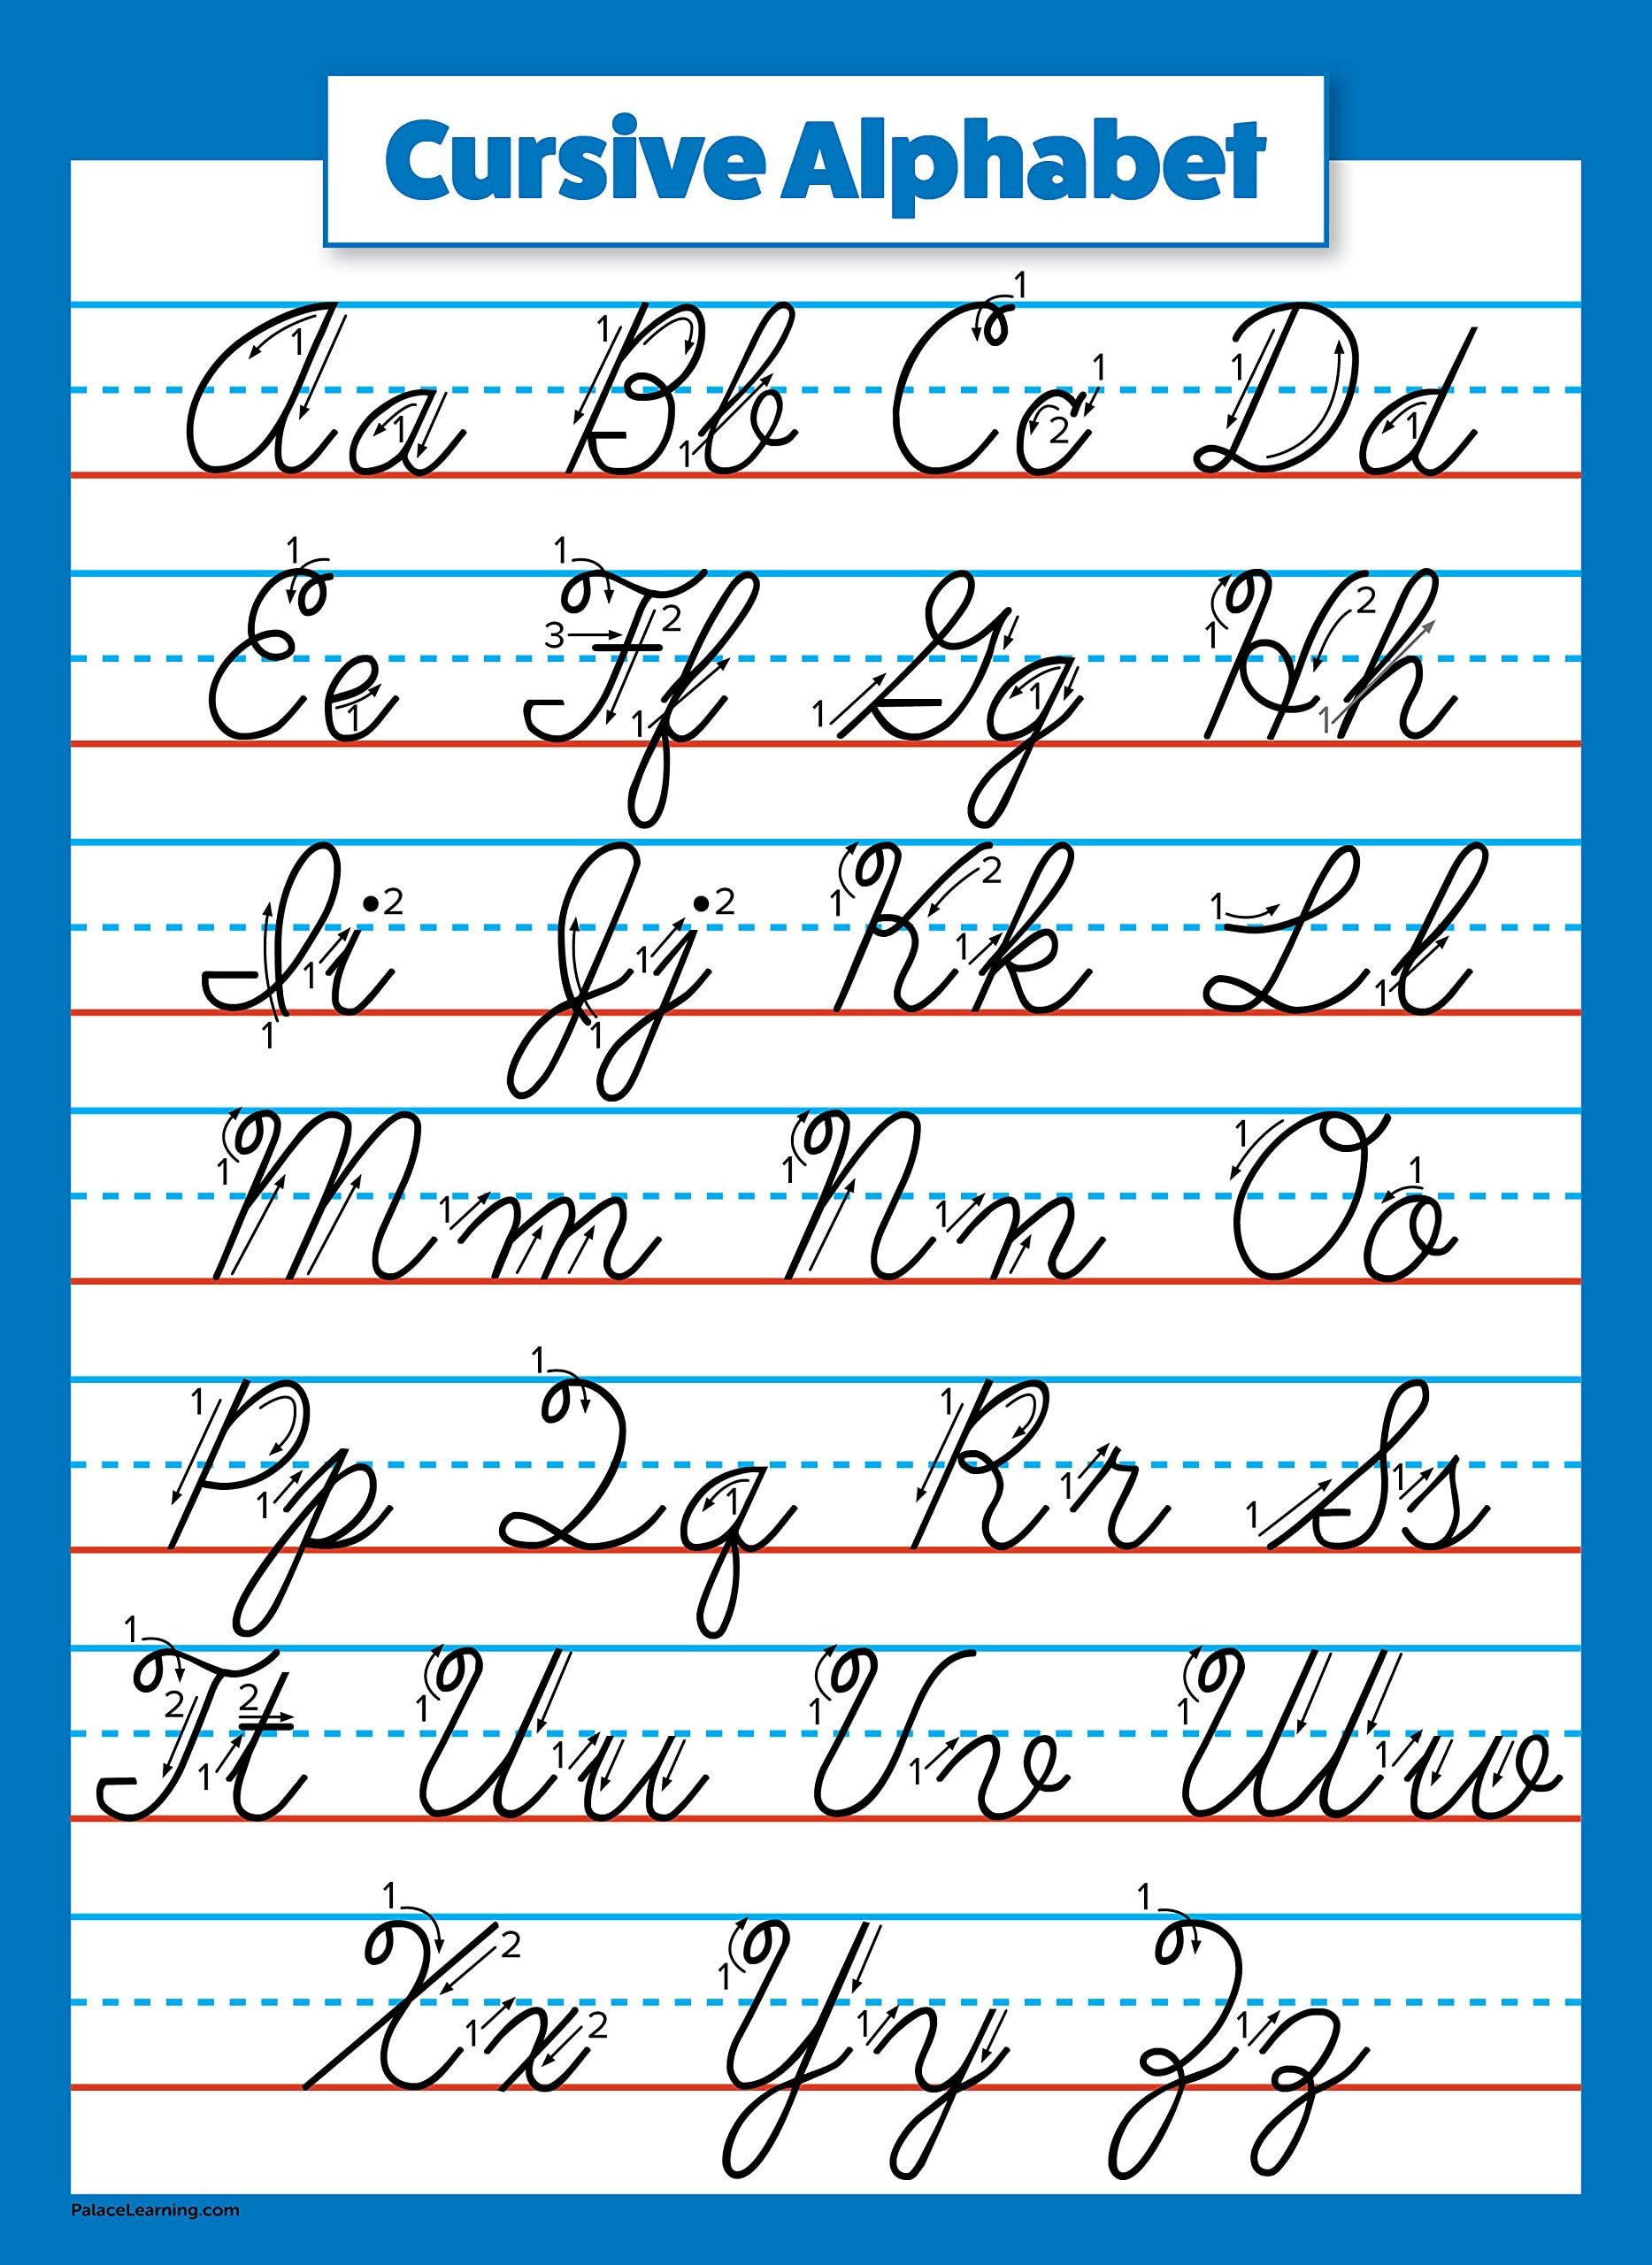 Cursive Alphabet
Aa Bb Cc Dd
Ee Ff Gg Hh
Ii Jj Kk Ll
Mm Nn Oo
Pp Qq Rr Ss
Tt Uu Vv Ww
Xx Yy Zz
PalaceLearning.com